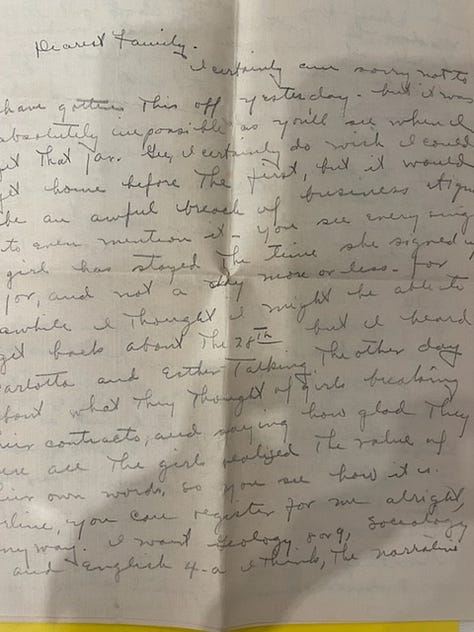 Dearest Family.
I certainly am sorry not to
have gotten this off yesterday - but it was
absolutely impossible as you'll see when I
get that far. Gee, I certainly do wish I could
get home before the first, but it would
be an awful breach of business
to even mention it - you see every
girl has stayed the time she signed
for, and not a day more or less - for
awhile I thought I might be able to
get back about the 28th but I heard
and Esther talking the other day
about what they thought of girls breaking
contracts, and saying how glad they
all the girls realized the value of
own words, so you see how it is.
you can register for me alright,
my way. I want Geology or 9, Sociology
and English 4-a I think, the narrative